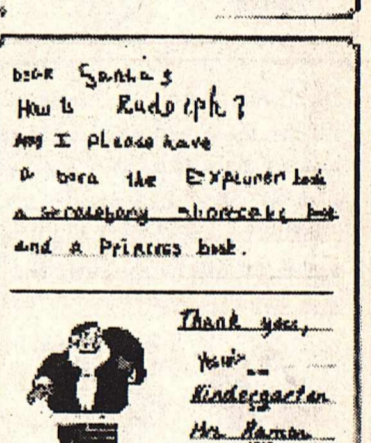 Dear Santa,
How is Rudolph?
May I please have
a Dora the Explorer book
a strawberry shortcake book
and a Princess book.
Thank you,
Kindergarten
Mrs.